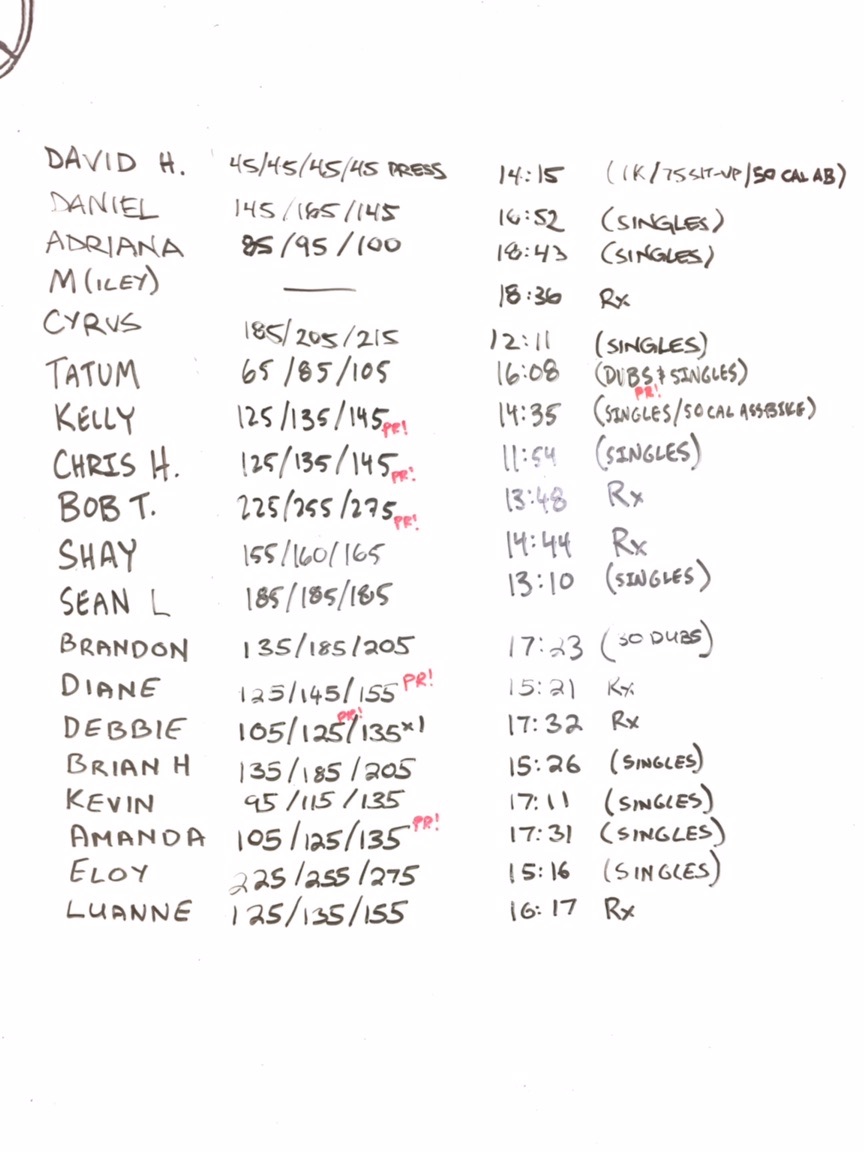 DAVID H. 45/45/45/45 PRESS 14:15 (1K/75 SIT-UP/50 CAL AB)
DANIEL 145/165/145 16:52 (SINGLES)
ADRIANA 85/95/100 18:43 (SINGLES)
M(ILEY) — 18:36 Rx
CYRUS 185/205/215 12:11 (SINGLES)
TATUM 65/85/105 16:08 (DUBS & SINGLES) PR!
KELLY 125/135/145 PR! 14:35 (SINGLES/50 CAL ASSBIKE)
CHRIS H. 125/135/145 PR! 11:54 (SINGLES)
BOB T. 225/255/275 PR! 13:48 Rx
SHAY 155/160/165 14:44 Rx
SEAN L 185/185/185 13:10 (SINGLES)
BRANDON 135/185/205 17:23 (50 DUBS)
DIANE 125/145/155 PR! 15:21 Rx
DEBBIE 105/125 PR!/135x1 17:32 Rx
BRIAN H 135/185/205 15:26 (SINGLES)
KEVIN 95/115/135 17:11 (SINGLES)
AMANDA 105/125/135 PR! 17:31 (SINGLES)
ELOY 225/255/275 15:16 (SINGLES)
LUANNE 125/135/155 16:17 Rx